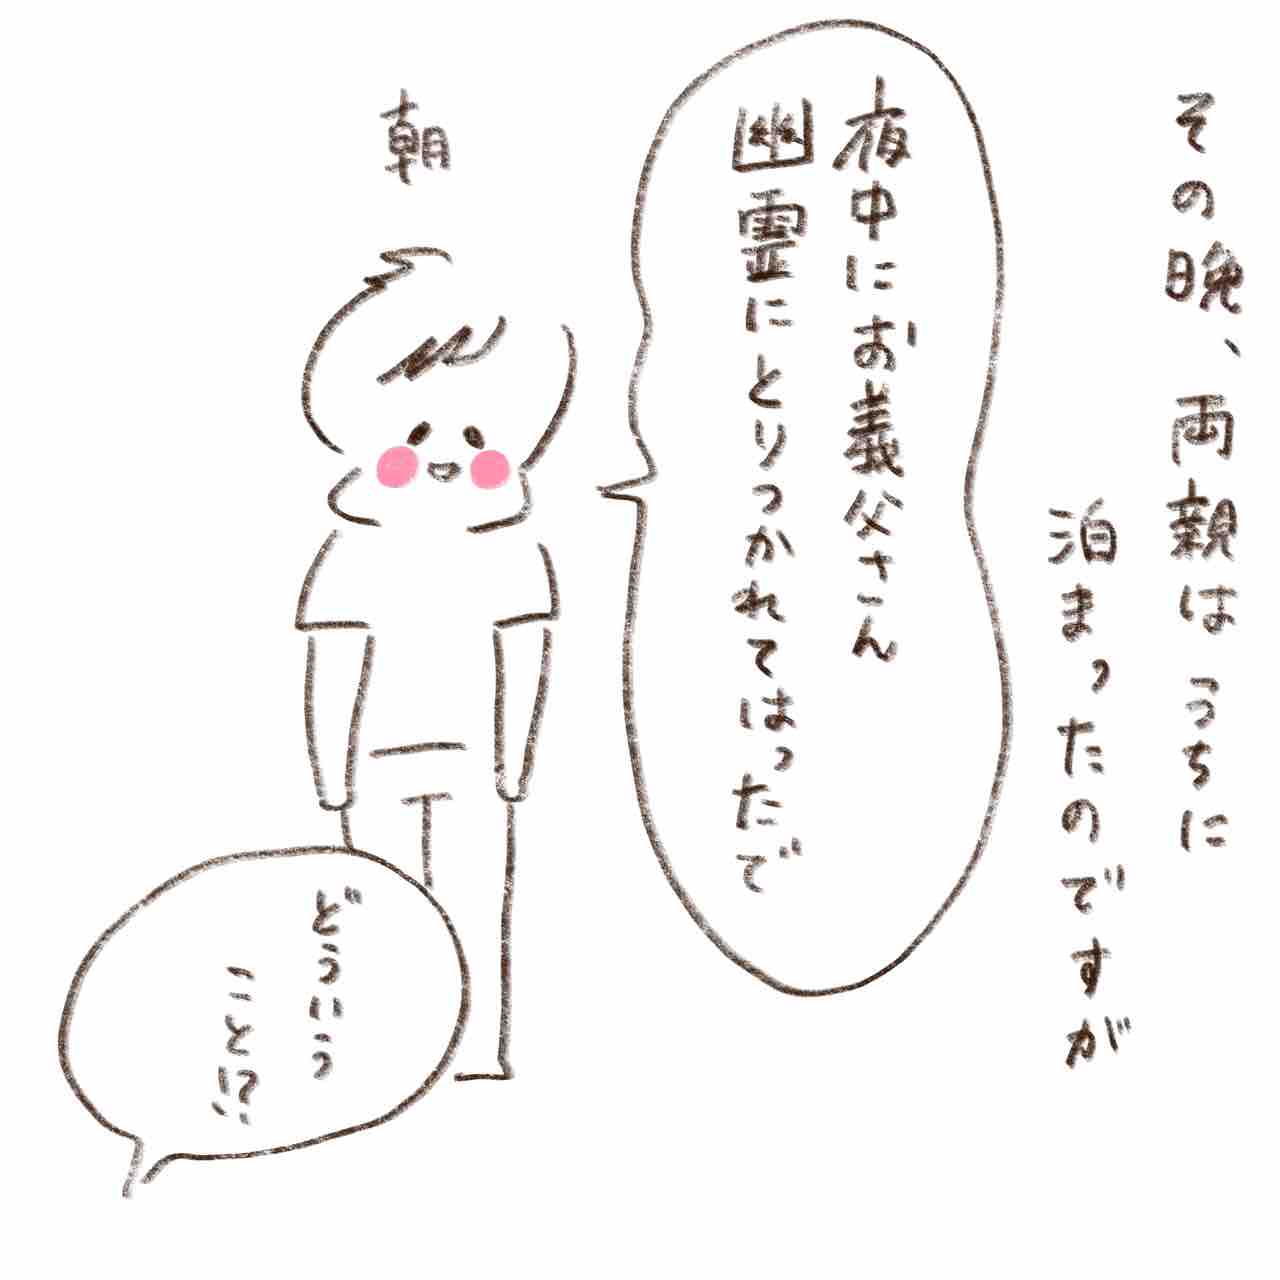 その晩、両親はうちに
泊まったのですが
夜中にお義父さん
幽霊にとりつかれてはったで
朝
どういう
こと!?